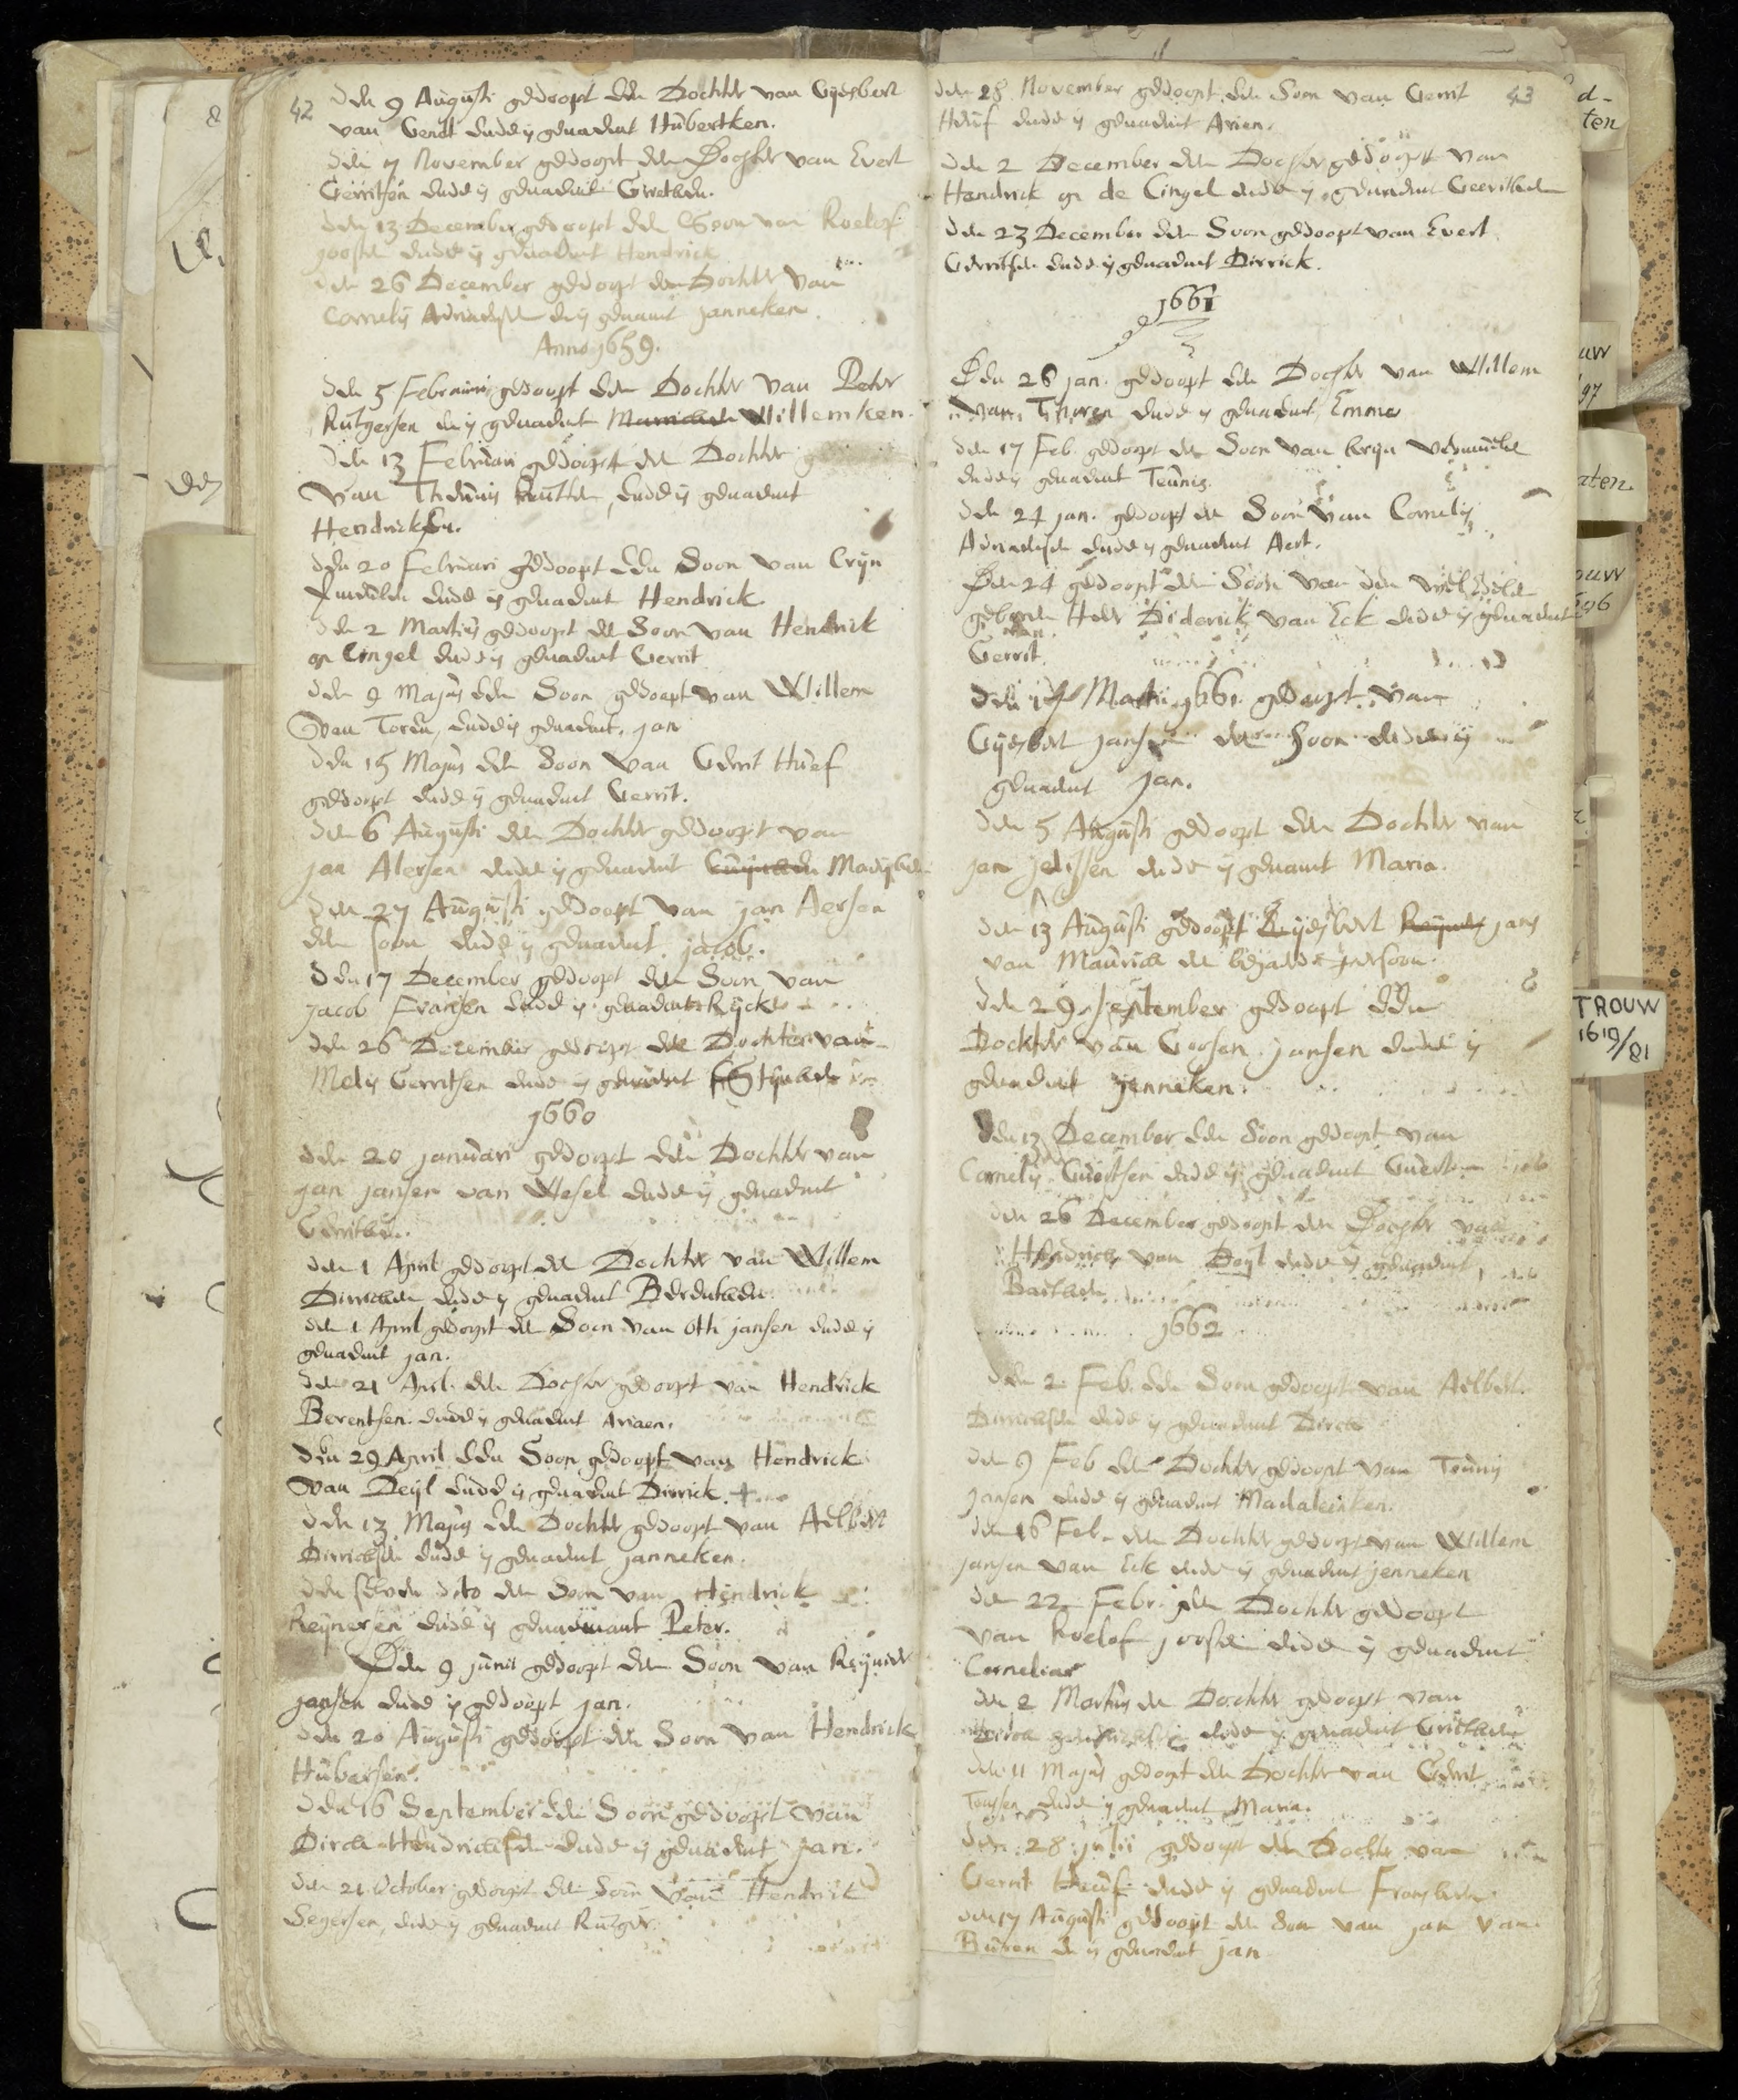 42
den 9 Augusti gedoopt den Dochter van Gijesbert
van Gendt ende is genaemt Hubertken.
den 7 November gedoopt den Dochter van Evert
Gerritsen ende is genaemt
den 13 December gedoopt den Soon van Roelof
joosten ende is genaemt Hendrick
den 26 December gedoopt den Dochter van
Cornelis Adriaensen is genaemt janneken.
Anno 1659.
den 5 Februarii gedoopt den Dochter van Peter
Rutgersen is genaemt Willemken.
den 13 Februari gedoopt den Dochter
van Theunis ende is genaemt
Hendricksken.
den 20 Februari gedoopt den Soon van Crijn
ende is genaemt Hendrick.
den 2 Martius gedoopt den Soon van Hendrick
op Cingel ende is genaemt Gerrit
den 9 Majus den Soon gedoopt van Willem
van Toren, ende is genaemt, jan
den 15 Majus den Soon van Gerrit Huef
gedoopt ende is genaemt Gerrit.
den 6 Augusti den Dochter gedoopt van
jan Alersen ende is genaemt
den 27 Augusti gedoopt van jan Aersen
den soon ende is genaemt jacob.
den 17 December gedoopt den Soon van
jacob Fransen ende is genaemt Ryck
den 26 December gedoopt den Dochter van
Melis Gerritsen ende is genaemt Stijnken
1660
den 20 januari gedoopt den Dochter van
jan jansen van Wesel ende is genaemt
Gerritken.
den 1 April gedoopt den Dochter van Willem
Dirricksen ende is genaemt Berentken
den 1 April gedoopt den Soon van oth jansen ende is
genaemt jan.
den 21 April den Dochter gedoopt van Hendrick
Berentsen. ende is genaemt Ariaen.
den 29 April den Soon gedoopt van Hendrick
van Deyl ende is genaemt Dirrick. +
den 13 Majus den Dochter gedoopt van Aelbert
Dirricksen ende is genaemt janneken.
den dito den Soon van Hendrick
Reijnersen ende is genaemt Peter.
Den 9 junii gedoopt den Soon van Reijnier
jansen ende is gedoopt jan.
den 20 Augusti gedoopt den Soon van Hendrick
Hubersen.
den 16 September den Soon gedoopt van
Dirck Hendricksen ende is genaemt jan.
den 21 October gedoopt den Soon van Hendrick
Segersen, ende is genaemt Rutger.
den 28 November gedoopt den Soon van Gerrit 43
Heuf ende is genaemt Arien.
den 2 December den Dochter gedoopt van
Hendrick op de Cingel ende is genaemt Geeritken
den 23 December den Soon gedoopt van Evert
Gerritsen ende is genaemt Dirrick.
1661
Den 26 jan. gedoopt den Dochter van Willem
van Thoren ende is genaemt Emme
den 17 Feb. gedoopt den Soon van krijn
ende is genaemt Teunis.
den 24 jan. gedoopt den Soon van Cornelis
Adriaensen ende is genaemt Aert.
Den 24 gedoopt den Soon van den wel Edele
geboren Heer Diderick van Eck ende is genaemt
Gerrit.
den Martii 1661 gedoopt van
Gijesbert jansen den Soon ende is
genaemt jan.
den 5 Augusti gedoopt den Dochter van
jan jelissen ende is genaemt Maria.
den 13 Augusti gedoopt Gijesbert jans
van Maurick persoon.
den 29 September gedoopt den
Dochter van Goosen jansen ende is
genaemt jenneken.
den 13 December den Soon gedoopt van
Cornelis Guertsen ende is genaemt
den 26 December gedoopt den Dochter van
Hendrick van Deyl ende is genaemt
1662
den 2 Feb. den Soon gedoopt van Aelbert
Dirricksen ende is genaemt Dirck
den 9 Feb den Dochter gedoopt van Teunis
jansen ende is genaemt Madaleinken.
den 16 Feb. den Dochter gedoopt van Willem
jansen van Eck ende is genaemt jenneken
den 22 Febr. den Dochter gedoopt
van Roelof joosten ende is genaemt
Cornelia
den 2 Martius den Dochter gedoopt van
Dirck ende is genaemt Grietken
den 11 Majus gedoopt den Dochter van Gerrit
Tonssen ende is genaemt Maria.
den 28 julii gedoopt den Dochter van
Gerrit Heuf ende is genaemt Fransken
den 17 Augusti gedoopt den Soon van jan van
Buren is genaemt jan
TROUW
1619/81